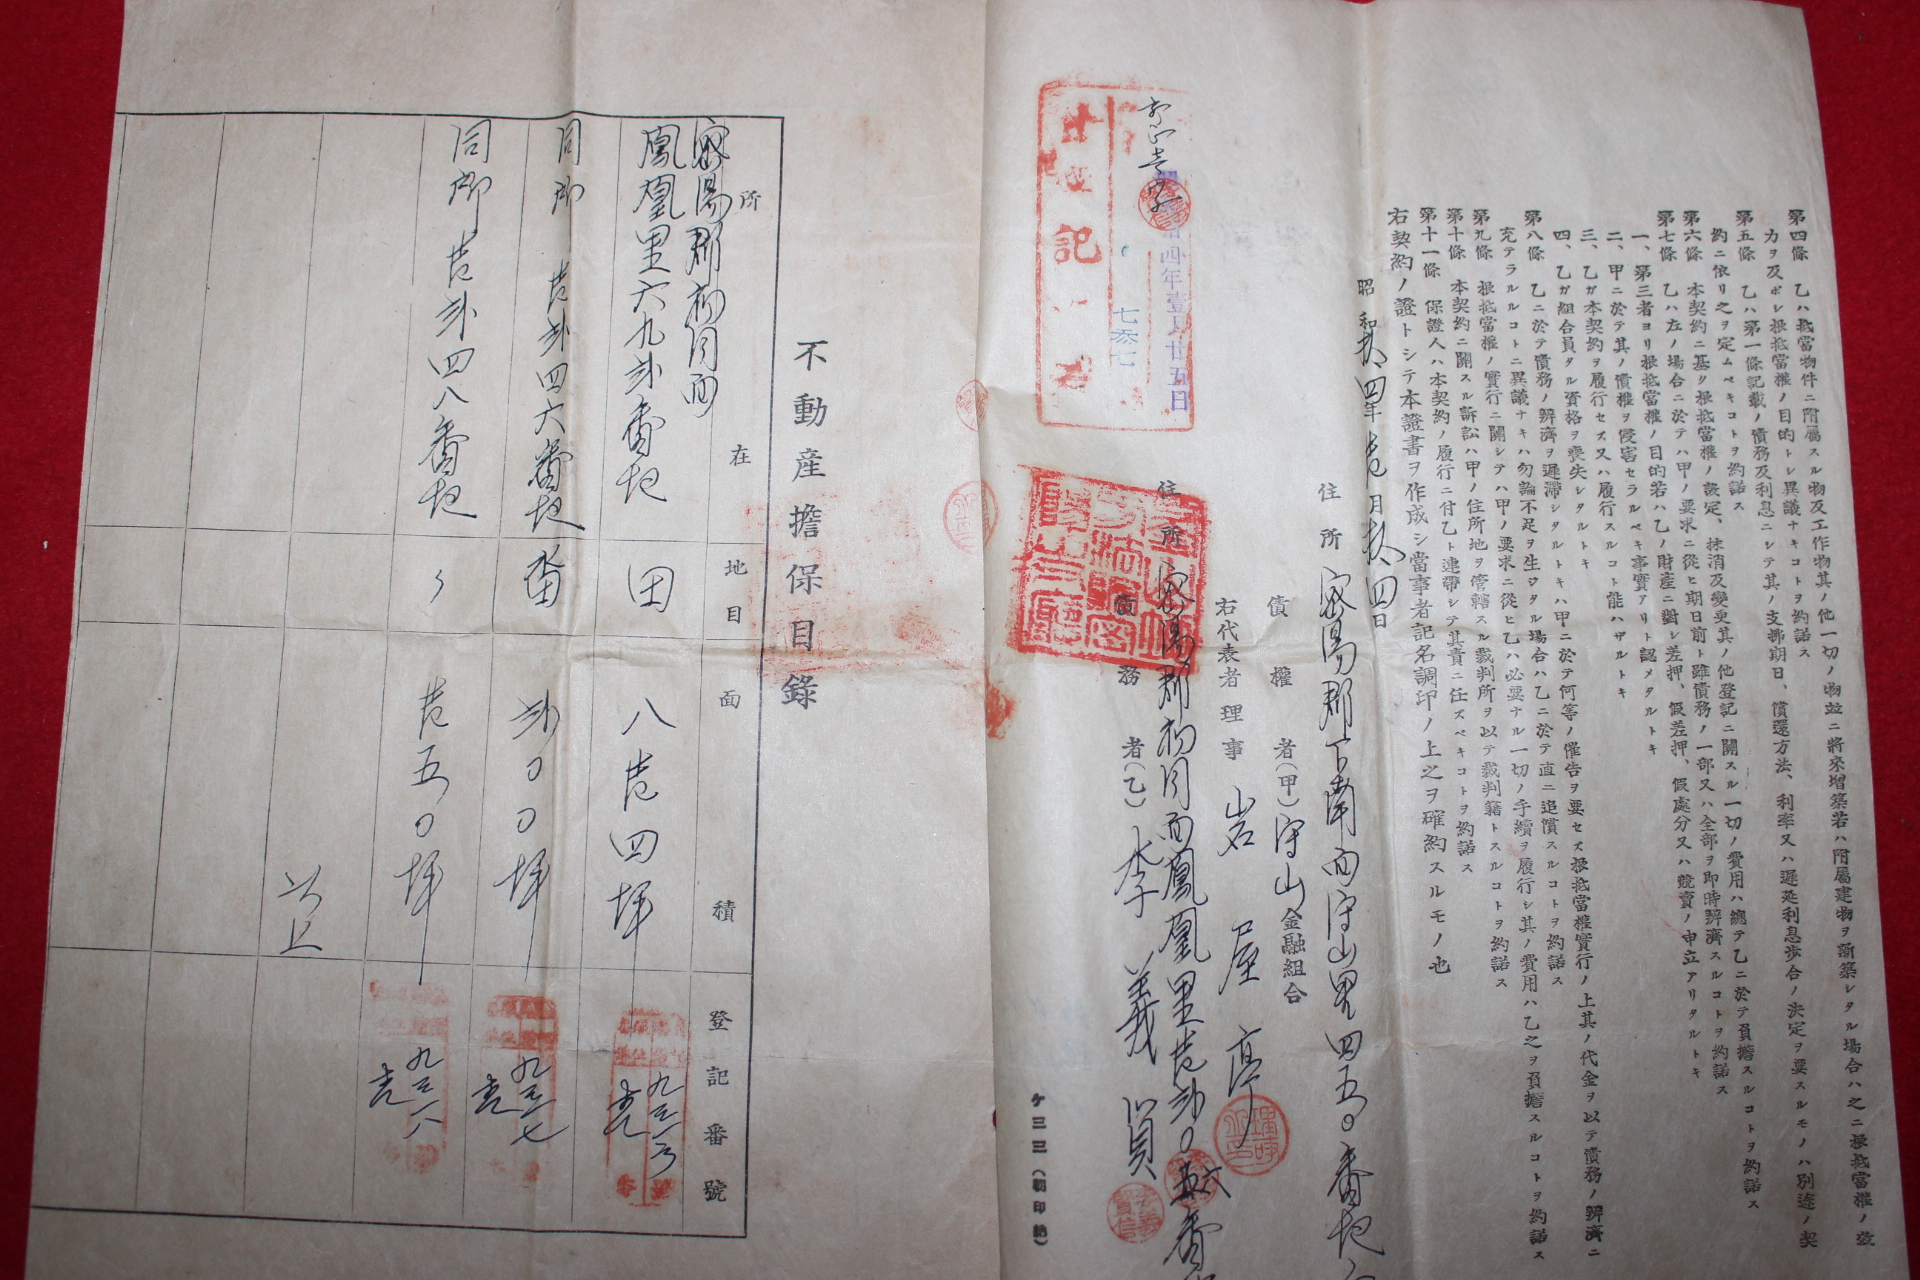 第四條　乙ハ抵當物件ニ附屬スル物及工作物其ノ他一切ノ物竝ニ將來增築若ハ附屬建物ヲ新築シタル場合ハ之ニ根抵當權ノ效
力ヲ及ボシ根抵當權ノ目的トシ異議ナキコトヲ約諾ス
第五條　乙ハ第一條記載ノ債務及利息ニシテ其ノ支拂期日、償還方法、利率又ハ遲延利息步合ノ決定ヲ要スルモノハ別途ノ契
約ニ依リ之ヲ定ムベキコトヲ約諾ス
第六條　本契約ニ基ク根抵當權ノ設定、抹消及變更其ノ他登記ニ關スル一切ノ費用ハ總テ乙ニ於テ負擔スルコトヲ約諾ス
第七條　乙ハ左ノ場合ニ於テハ甲ノ要求ニ從ヒ期日前ト雖債務ノ一部又ハ全部ヲ即時辨濟スルコトヲ約諾ス
一、第三者ヨリ根抵當權ノ目的若ハ乙ノ財産ニ對シ差押、假差押、假處分又ハ競賣ノ申立アリタルトキ
二、甲ニ於テ其ノ債權ヲ侵害セラルベキ事實アリト認メタルトキ
三、乙ガ本契約ヲ履行セズ又ハ履行スルコト能ハザルトキ
四、乙ガ組合員タル資格ヲ喪失シタルトキ
第八條　乙ニ於テ債務ノ辨濟ヲ遲滯シタルトキハ甲ニ於テ何等ノ催告ヲ要セズ根抵當權實行ノ上其ノ代金ヲ以テ債務ノ辨濟ニ
充テラルルコトニ異議ナキハ勿論不足ヲ生ジタル場合ハ乙ニ於テ直ニ追償スルコトヲ約諾ス
第九條　根抵當權ノ實行ニ關シテハ甲ノ要求ニ從ヒ乙ハ必要ナル一切ノ手續ヲ履行シ其ノ費用ハ乙之ヲ負擔スルコトヲ約諾ス
第十條　本契約ニ關スル訴訟ハ甲ノ住所地ヲ管轄スル裁判所ヲ以テ裁判籍トスルコトヲ約諾ス
第十一條　保證人ハ本契約ノ履行ニ付乙ト連帶シテ其責ニ任ズベキコトヲ約諾ス
右契約ノ證トシテ本證書ヲ作成シ當事者記名調印ノ上之ヲ確約スルモノ也
昭和 四年壱月 四日
住所　密陽郡下南面守山里四五〇番地
債權者（甲）守山金融組合
右代表者理事　岩屋
住所　密陽郡初同面鳳凰里壱弐〇 番
債務者（乙）李義
四年壹月廿五日
七叁七
記
ケ三三（朝印納）
不動産擔保目錄
所在
地目
面積
登記番號
密陽郡初同面
鳳凰里六九弐番地　田　八壱四坪　九三一六
同所　壱弐四六番地　畓　弐〇〇坪　九三一七
同所　壱弐四八番地　〃　壱五〇坪　九三一八
以上